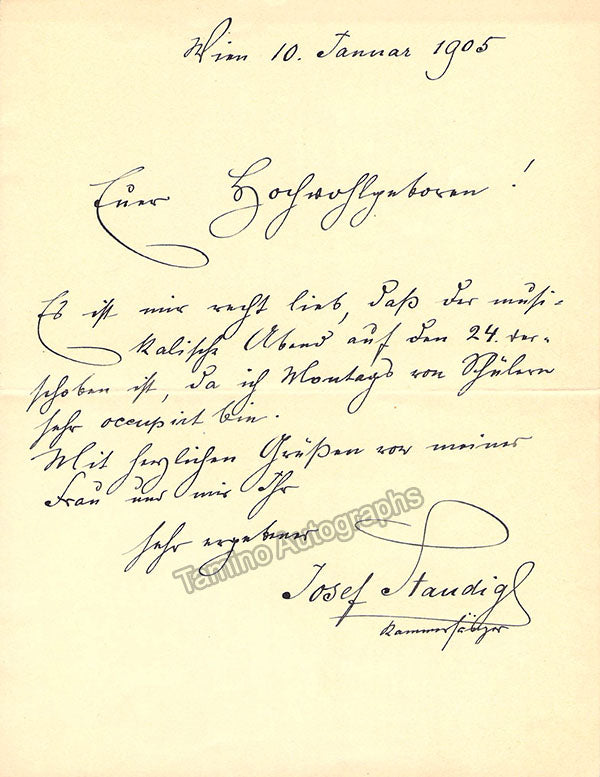 Wien 10. Januar 1905
Euer Hochwohlgeboren !
Es ist mir recht lieb, daß der musi-
kalische Abend auf den 24. ver-
schoben ist, da ich Montags von Schülern
sehr occupirt bin.
Mit herzlichen Grüßen von meiner
Frau und mir Ihr
sehr ergebener
Tamino Autographs
Josef Staudigl
Kammersänger